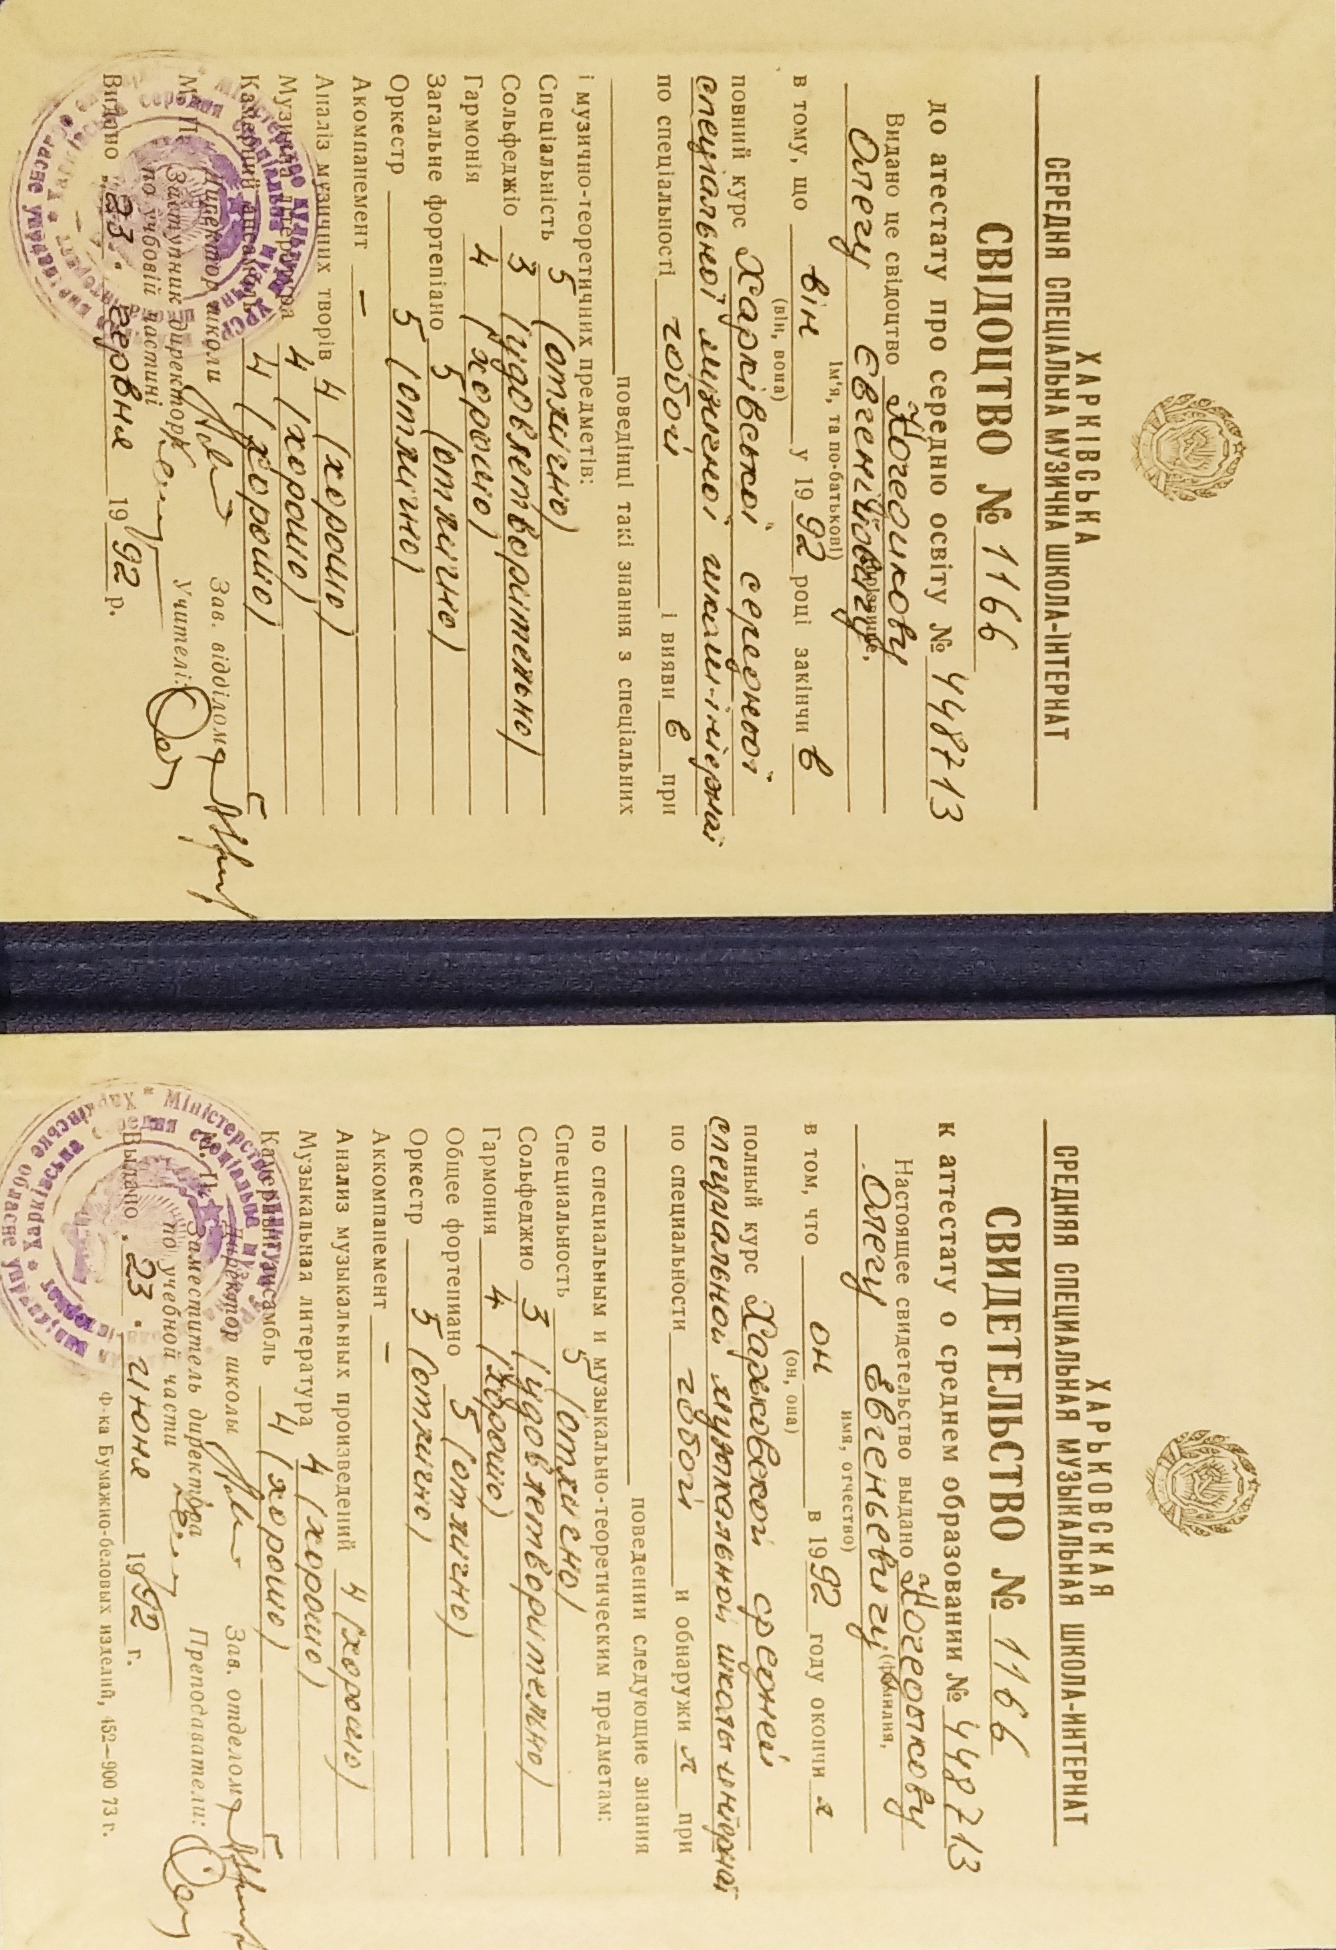 ХАРКІВСЬКА
СЕРЕДНЯ СПЕЦІАЛЬНА МУЗИЧНА ШКОЛА-ІНТЕРНАТ
СВІДОЦТВО № 1166
до атестату про середню освіту № 448713
Видано це свідоцтво
(прізвище,
Олегу Євгенійовичу
ім'я, та по-батькові)
в тому, що він у 1992 році закінчи в
(він, вона)
повний курс Харківської середньої
спеціальної музичної школи-інтернат
по спеціальності гобой і вияви в при
поведінці такі знання з спеціальних
і музично-теоретичних предметів:
Спеціальність 5 (отлично)
Сольфеджіо 3 (удовлетворительно)
Гармонія 4 (хорошо)
Загальне фортепіано 5 (отлично)
Оркестр 5 (отлично)
Акомпанемент —
Аналіз музичних творів 4 (хорошо)
Музична література 4 (хорошо)
Камерний ансамбль 4 (хорошо)
М. П. Директор школи Зав. відділом
Заступник директора
по учбовій частині Учителі:
Видано „23“ червня 1992 р.
ХАРЬКОВСКАЯ
СРЕДНЯЯ СПЕЦИАЛЬНАЯ МУЗЫКАЛЬНАЯ ШКОЛА-ИНТЕРНАТ
СВИДЕТЕЛЬСТВО № 1166
к аттестату о среднем образовании № 448713
Настоящее свидетельство выдано
(фамилия,
Олегу Евгеньевичу
имя, отчество)
в том, что он в 1992 году окончи л
(он, она)
полный курс Харьковской средней
специальной музыкальной школы-интернат
по специальности гобой и обнаружи л при
поведении следующие знания
по специальным и музыкально-теоретическим предметам:
Специальность 5 (отлично)
Сольфеджио 3 (удовлетворительно)
Гармония 4 (хорошо)
Общее фортепиано 5 (отлично)
Оркестр 5 (отлично)
Аккомпанемент —
Анализ музыкальных произведений 4 (хорошо)
Музыкальная литература 4 (хорошо)
Камерный ансамбль 4 (хорошо)
М. П. Директор школы Зав. отделом
Заместитель директора
по учебной части Преподаватели:
Выдано „23“ июня 1992 г.
Ф-ка Бумажно-беловых изделий, 452—900 73 г.